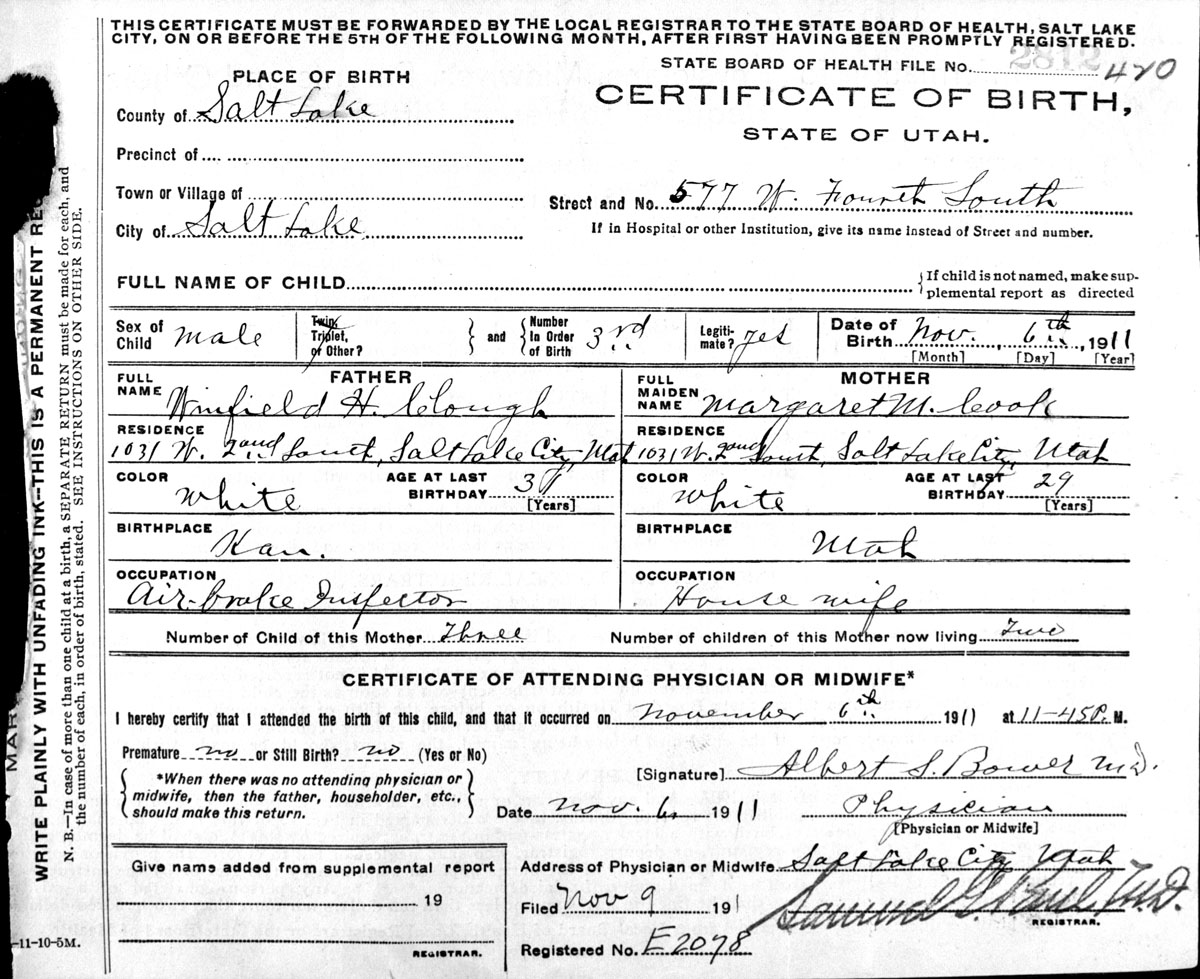 THIS CERTIFICATE MUST BE FORWARDED BY THE LOCAL REGISTRAR TO THE STATE BOARD OF HEALTH, SALT LAKE
CITY, ON OR BEFORE THE 5TH OF THE FOLLOWING MONTH, AFTER FIRST HAVING BEEN PROMPTLY REGISTERED.
STATE BOARD OF HEALTH FILE No. 2812 420
PLACE OF BIRTH
CERTIFICATE OF BIRTH,
STATE OF UTAH.
County of Salt Lake
Precinct of
Town or Village of
Street and No. 577 W. Fourth South
City of Salt Lake
If in Hospital or other Institution, give its name instead of Street and number.
FULL NAME OF CHILD
If child is not named, make sup-
plemental report as directed
Sex of Child male
Twin, Triplet, or Other?
and Number In Order of Birth 3rd
Legiti-mate? yes
Date of Birth Nov. 6th, 1911
[Month] [Day] [Year]
FATHER
FULL NAME Winfield H. Clough
MOTHER
FULL MAIDEN NAME Margaret M. Cook
RESIDENCE
1031 W. 2nd South, Salt Lake City, Utah
RESIDENCE
1031 W. 2nd South, Salt Lake City, Utah
COLOR White
AGE AT LAST BIRTHDAY [Years]
COLOR White
AGE AT LAST BIRTHDAY 29 [Years]
BIRTHPLACE Kan.
BIRTHPLACE Utah
OCCUPATION
Air-brake Inspector
OCCUPATION
House wife
Number of Child of this Mother Three
Number of children of this Mother now living Two
CERTIFICATE OF ATTENDING PHYSICIAN OR MIDWIFE*
I hereby certify that I attended the birth of this child, and that it occurred on November 6th 1911 at 11-45 P. M.
Premature no or Still Birth? no (Yes or No)
*When there was no attending physician or
midwife, then the father, householder, etc.,
should make this return.
[Signature] Albert S. Bower MD.
Date Nov. 6, 1911 Physician
[Physician or Midwife]
Give name added from supplemental report
19
REGISTRAR.
Address of Physician or Midwife Salt Lake City Utah
Filed Nov 9 1911
Samuel G. Paul, M.D.
REGISTRAR.
Registered No. E2078
-11-10-5M.
WRITE PLAINLY WITH UNFADING INK--THIS IS A PERMANENT REC
N. B.—In case of more than one child at a birth, a SEPARATE RETURN must be made for each, and
the number of each, in order of birth, stated. SEE INSTRUCTIONS ON OTHER SIDE.